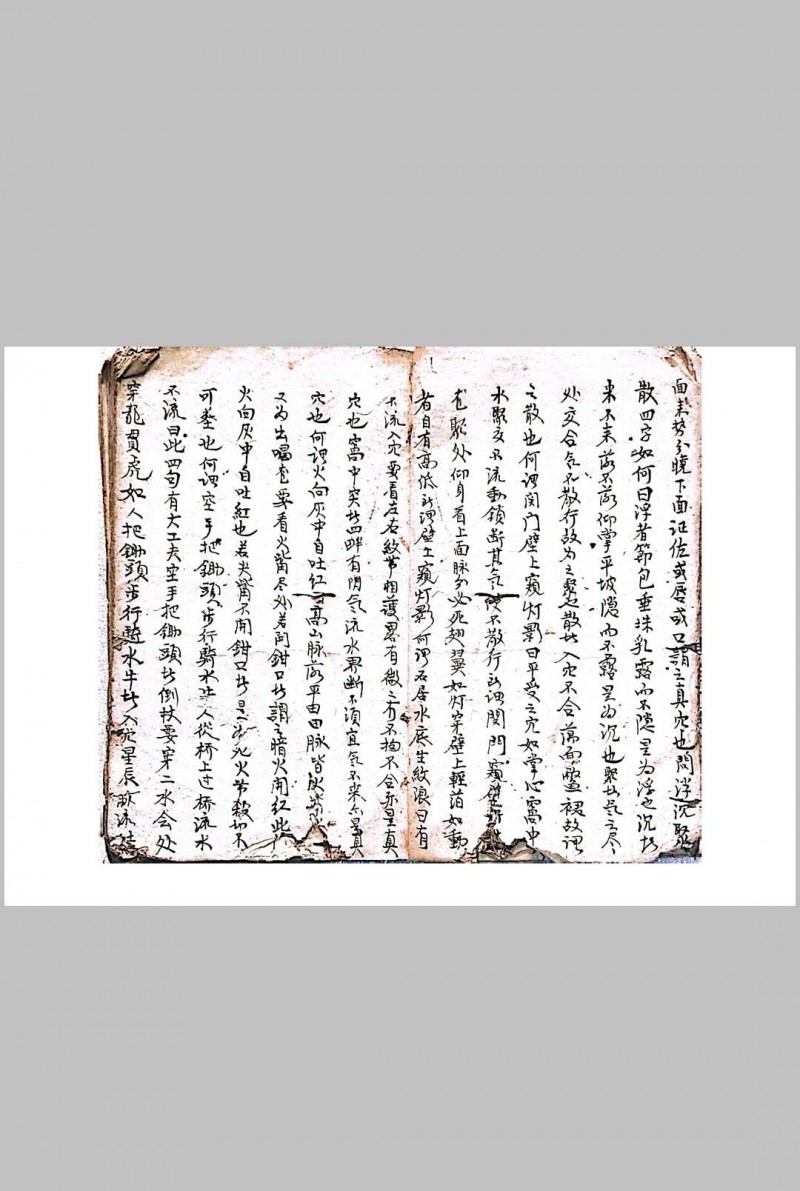 面來势分曉下面証佐或唇或口謂之真穴也問浮沉聚
散四字如何曰浮者節包垂珠乳露而不隱是为浮也沉者
来不来落不落仰掌平坡隱而不露是为沉也聚者気之尽
处交合気不散行故为之聚也散者入穴不合荡而
之散也何谓闭门壁上窺灯影曰平受之穴如掌心窩中
水聚交不流動锁断其気不散行所谓関門窺
聚处仰身看上面脉必死翅翼如灯穿壁上輕蕩如動
者自有高低所謂壁上窺灯影何谓石居水底生紋浪曰有
水流入穴要看左右紋节相護界有微之不抽不合亦是真
穴也窩中突者四畔有閃気流水界断不須宜気不来亦是真
穴也何谓火向灰中自吐红曰高山脉落平由田脉皆
又为出唱要看火觜尽处若闭钳口者謂之暗火開红此
火向灰中自吐紅也若尖觜不開钳口者是为死火节殺切不
可塟也何谓空手把鋤頭步行騎水牛人從桥上过桥流水
不流曰此四句有大工夫空手把鋤頭者倒扶要穿二水会处
穿龍貫虎如人把鋤頭步行騎水牛者入穴星辰